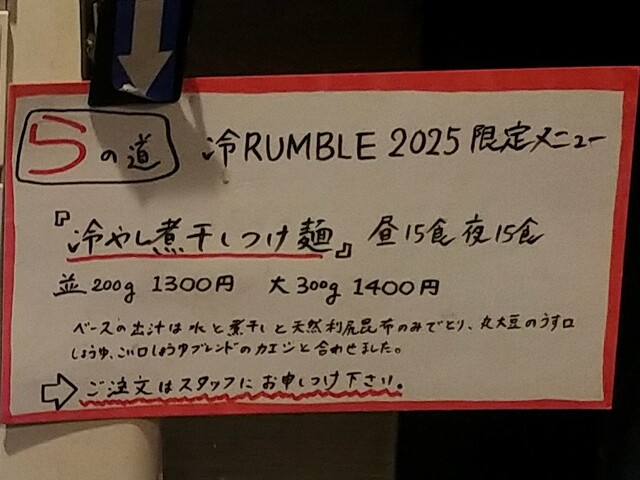 らの道 冷RUMBLE 2025 限定メニュー
『冷やし煮干しつけ麺』 昼15食 夜15食
並200g 1300円 大300g 1400円
ベースの出汁は水と煮干しと天然利尻昆布のみでとり、丸大豆のうす口
しょうゆ、こい口しょうゆブレンドのカエシと合わせました。
⇨ ご注文はスタッフにお申しつけ下さい。